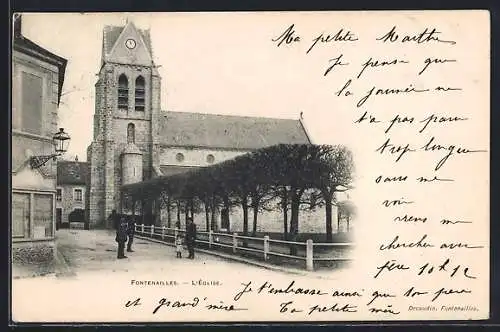 Ma petite Marthe
je pense que
la journée ne
t'a pas paru
trop longue
sans me
voir
me
chercher avec
père
FONTENAILLES. — L'ÉGLISE.
Je t'embrasse ainsi que ton père
et grand' mère
Ta petite mère
Decaudin, Fontenailles.